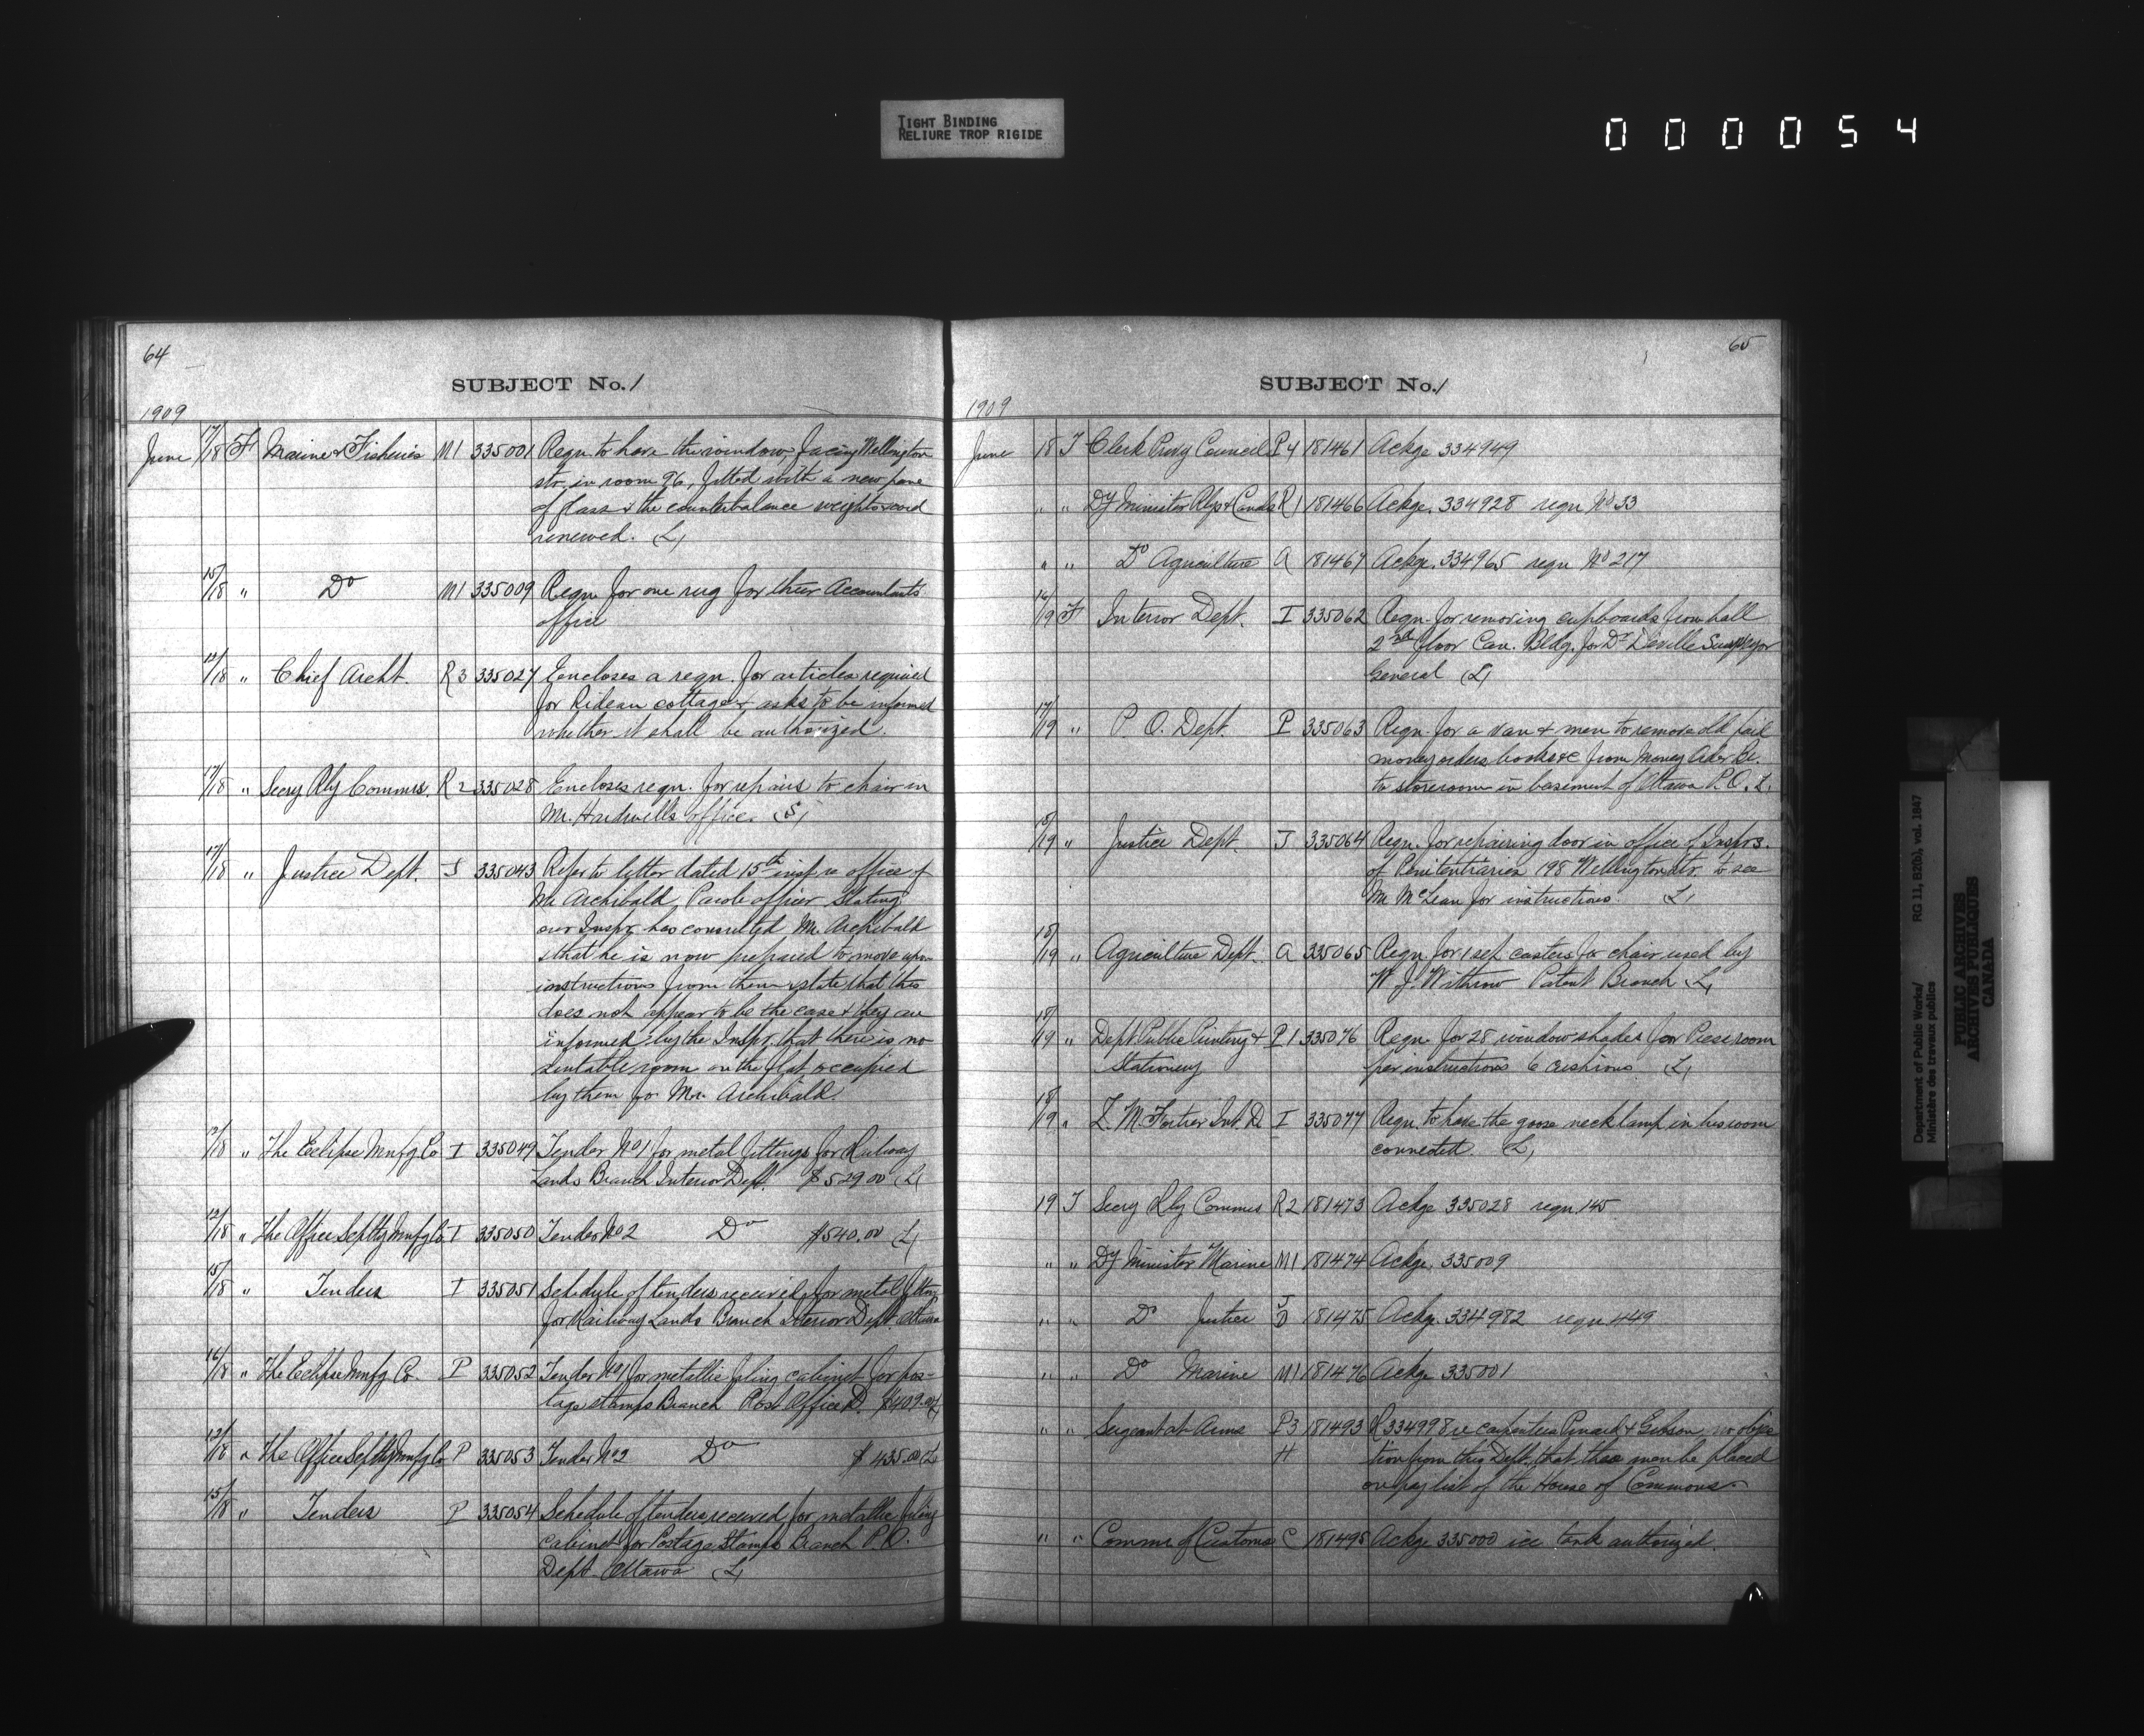 TIGHT BINDING
RELIURE TROP RIGIDE
000054
64
SUBJECT No. 1
1909
June 17/18 F Marine & Fisheries M1 335001 Reqn. to have the window, facing Wellington
str. in room 96, fitted with a new pane
of glass & the counterbalance weights & cord
renewed. (L)
15/18 " Do M1 335009 Reqn. for one rug for their Accountants
office
/18 " Chief Archt. R3 335027 Encloses a reqn. for articles required
for Rideau cottage & asks to be informed
whether it shall be authorized.
17/18 " Secry Rly Commrs. R2 335028 Encloses reqn. for repairs to chair in
Mr. Hardwell's office. (S)
17/18 " Justice Dept. J 335043 Refer to letter dated 15th inst. re office of
Mr Archibald, Parole officer stating
our Inspr. has consulted Mr. Archibald
& that he is now prepared to move upon
instructions from them & state that this
does not appear to be the case & they are
informed by the Inspr. that there is no
suitable room on the flat occupied
by them for Mr. Archibald.
/18 " The Eclipse Mnfg Co I 335049 Tender No 1 for metal fittings for Railway
Lands Branch Interior Dept. $529.00 (L)
/18 " The Office Splty Mnfg Co I 335050 Tender No 2 Do $540.00 (L)
15/18 " Tenders I 335051 Schedule of tenders received for metal fittgs
for Railway Lands Branch Interior Dept. Ottawa
16/18 " The Eclipse Mnfg Co. P 335052 Tender No 1 for metallic filing cabinet for pos-
tage stamps Branch Post Office D. $409.00
/18 " The Office Splty Mnfg Co P 335053 Tender No 2 Do $435.00 (L)
15/18 " Tenders P 335054 Schedule of tenders received for metallic filing
cabinet for Postage Stamps Branch P.O.
Dept. Ottawa (L)
65
SUBJECT No. 1
1909
June 18 T Clerk Privy Council P4 181461 Ackge 334949
" " Dy Minister Rlys & Canals R1 181466 Ackge. 334928 reqn No 33
" " Do Agriculture A 181467 Ackge. 334965 reqn No 217
16/19 F Interior Dept. I 335062 Reqn. for removing cupboards from hall
2nd floor Can. Bldg. for Dr Deville Surveyor
General (L)
17/19 " P. O. Dept. P 335063 Reqn. for a van & men to remove old paid
money orders, books &c from Money Order Br.
to storeroom in basement of Ottawa P.O. L
18/19 " Justice Dept. J 335064 Reqn. for repairing door in office of Insprs.
of Penitentiaries 198 Wellington str. to see
Mr McLean for instructions. L
18/19 " Agriculture Dept. A 335065 Reqn. for 1 set casters for chair used by
W. J. Withrow Patent Branch L
18/19 " Dept. Public Printing & P1 335076 Reqn. for 28 window shades for Press room
Stationery per instructions 6 cushions (L)
18/19 " L. M. Fortier Int. D I 335077 Reqn. to have the goose neck lamp in his room
connected. (L)
19 T Secry Rly Commrs R2 181473 Ackge 335028 reqn. 145
" " Dy Minister Marine M1 181474 Ackge. 335009
" " Do Justice J 181475 Ackge. 334982 reqn. 449
" " Do Marine M1 181476 Ackge 335001
" " Sergeant at Arms P3 181493 R 334998 re carpenters Pinard & Gibson, no objec
H tion from this Dept. that these men be placed
on pay list of the House of Commons
" " Commr of Customs C 181495 Ackge 335000 ice tank authorized.
Department of Public Works/ RG 11, B2(b), vol. 1847
Ministère des travaux publics
PUBLIC ARCHIVES
ARCHIVES PUBLIQUES
CANADA